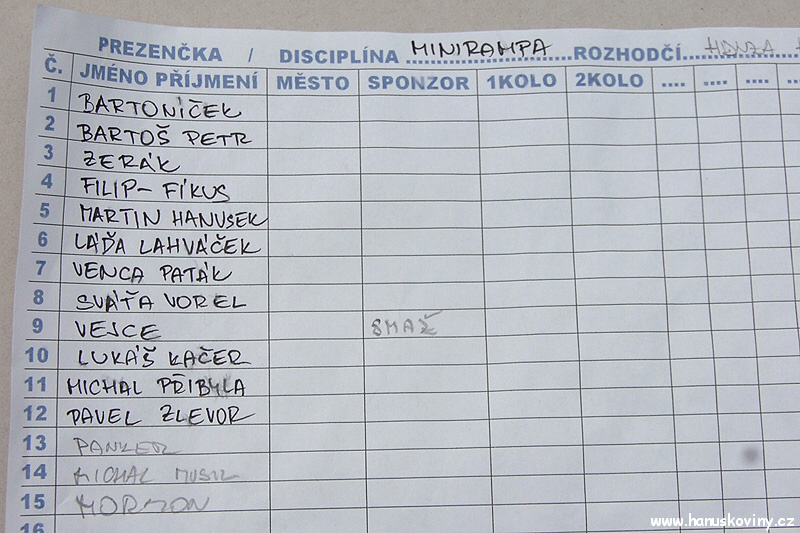 PREZENČKA / DISCIPLÍNA MINIRAMPA ROZHODČÍ HANZA
Č. JMÉNO PŘÍJMENÍ MĚSTO SPONZOR 1KOLO 2KOLO .... .... ....
1 BARTONÍČEK
2 BARTOŠ PETR
3 ŽERÁK
4 FILIP - FÍKUS
5 MARTIN HANUSEK
6 LÁĎA LAHVÁČEK
7 VENCA PATÁK
8 SVÁŤA VOREL
9 VEJCE SMAŽ
10 LUKÁŠ KAČER
11 MICHAL PŘIBYLA
12 PAVEL ZLEVOR
13 PANKER
14 MICHAL MUSIL
15 MORMON
16
www.hanuskoviny.cz